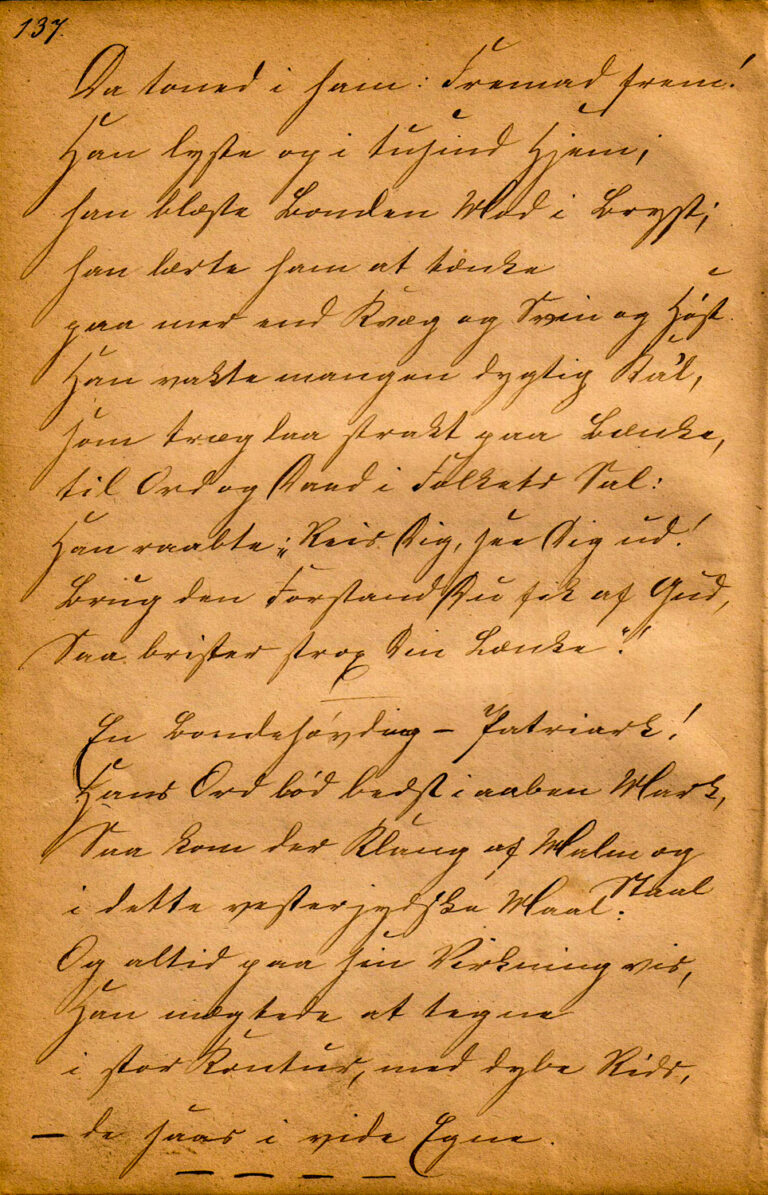 137.
Da toned i ham: Fremad frem!
Han lyste op i tusind Hjem;
han blæste Bonden Mod i Bryst;
han lærte ham at tænke
paa mer end Kvæg og Svin og Høst.
Han vakte mangen dygtig Kà'l,
som træg laa strakt paa Bænke,
til Ord og Daad i Folkets Sal:
Han raabte: „Reis Dig, see Dig ud!
Brug den Forstand Du fik af Gud,
Saa brister strax Din Lænke"!
En Bondehøvding – Patriark!
Hans Ord lød bedst i aaben Mark,
Saa kom der Klang af Malm og
Staal
i dette vesterjydske Maal.
Og altid paa sin Virkning vis,
Han mægtede at tegne
i stor Kontur, med dybe Rids,
– de saas i vide Egne.